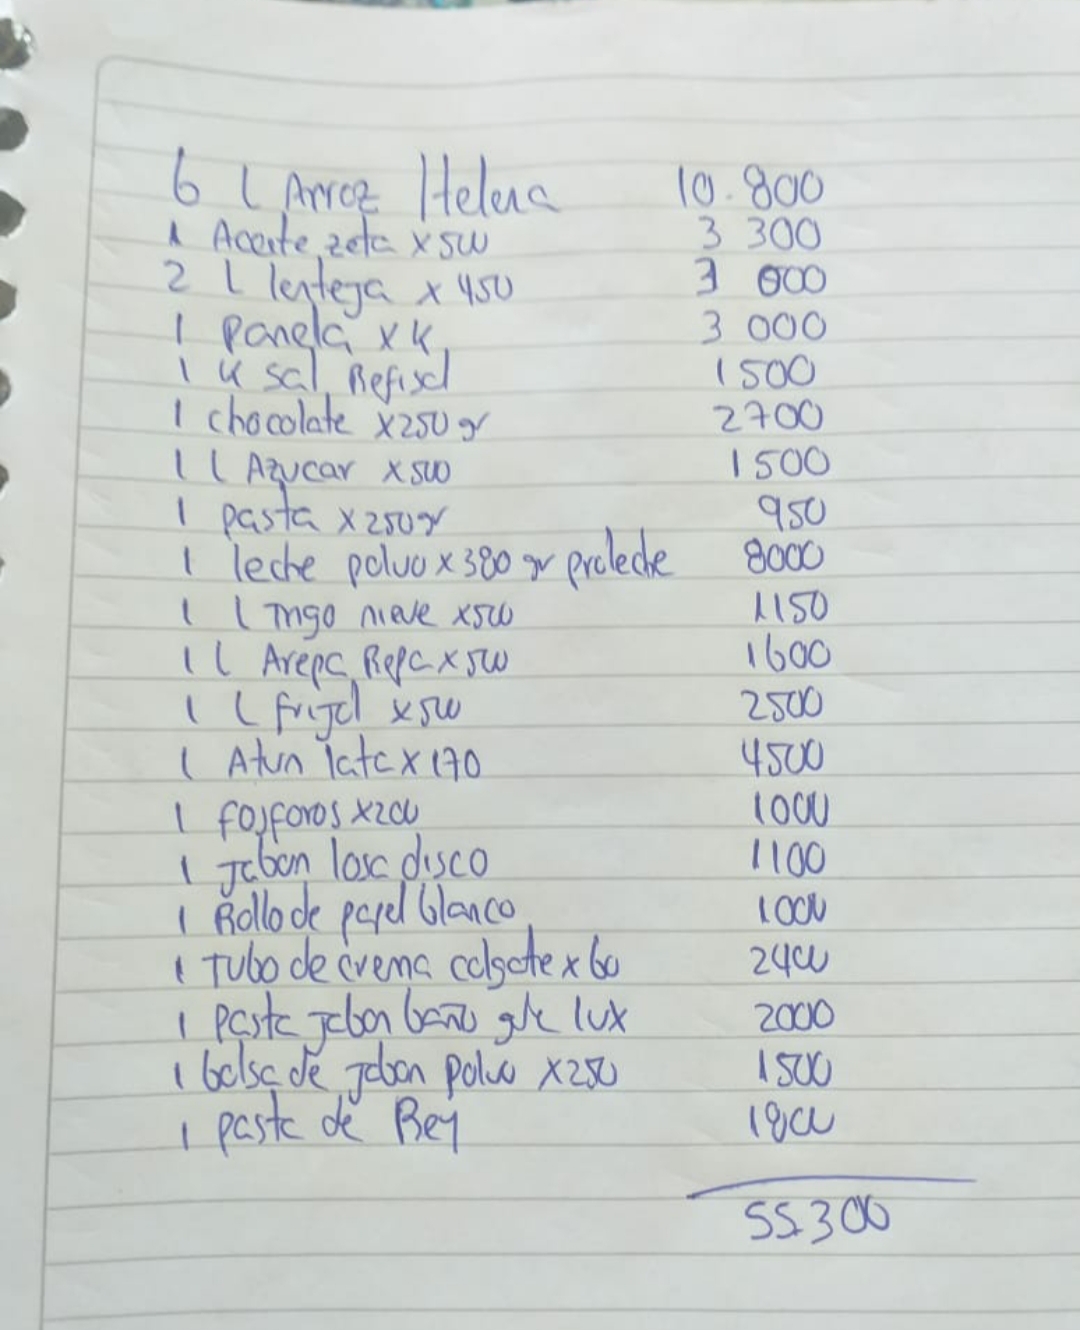 6 l Arroz Helena 10.800
1 Aceite zeta x 500 3 300
2 l lenteja x 450 3 000
1 panela x K 3 000
1 K sal Refisal 1 500
1 chocolate x250 gr 2700
1 l Azucar x 500 1 500
1 pasta x 250gr 950
1 leche polvo x 380 gr proleche 8000
1 l Trigo nieve x500 1150
1 l Arepa Repa x 500 1600
1 l frijol x 500 2500
1 Atun lata x 170 4500
1 fosforos x 200 1000
1 jabon losa disco 1100
1 Rollo de papel blanco 1000
1 Tubo de crema colgate x 60 2400
1 pasta jabon baño lux 2000
1 bolsa de jabon polvo x 250 1500
1 pasta de Rey 1800
55.300